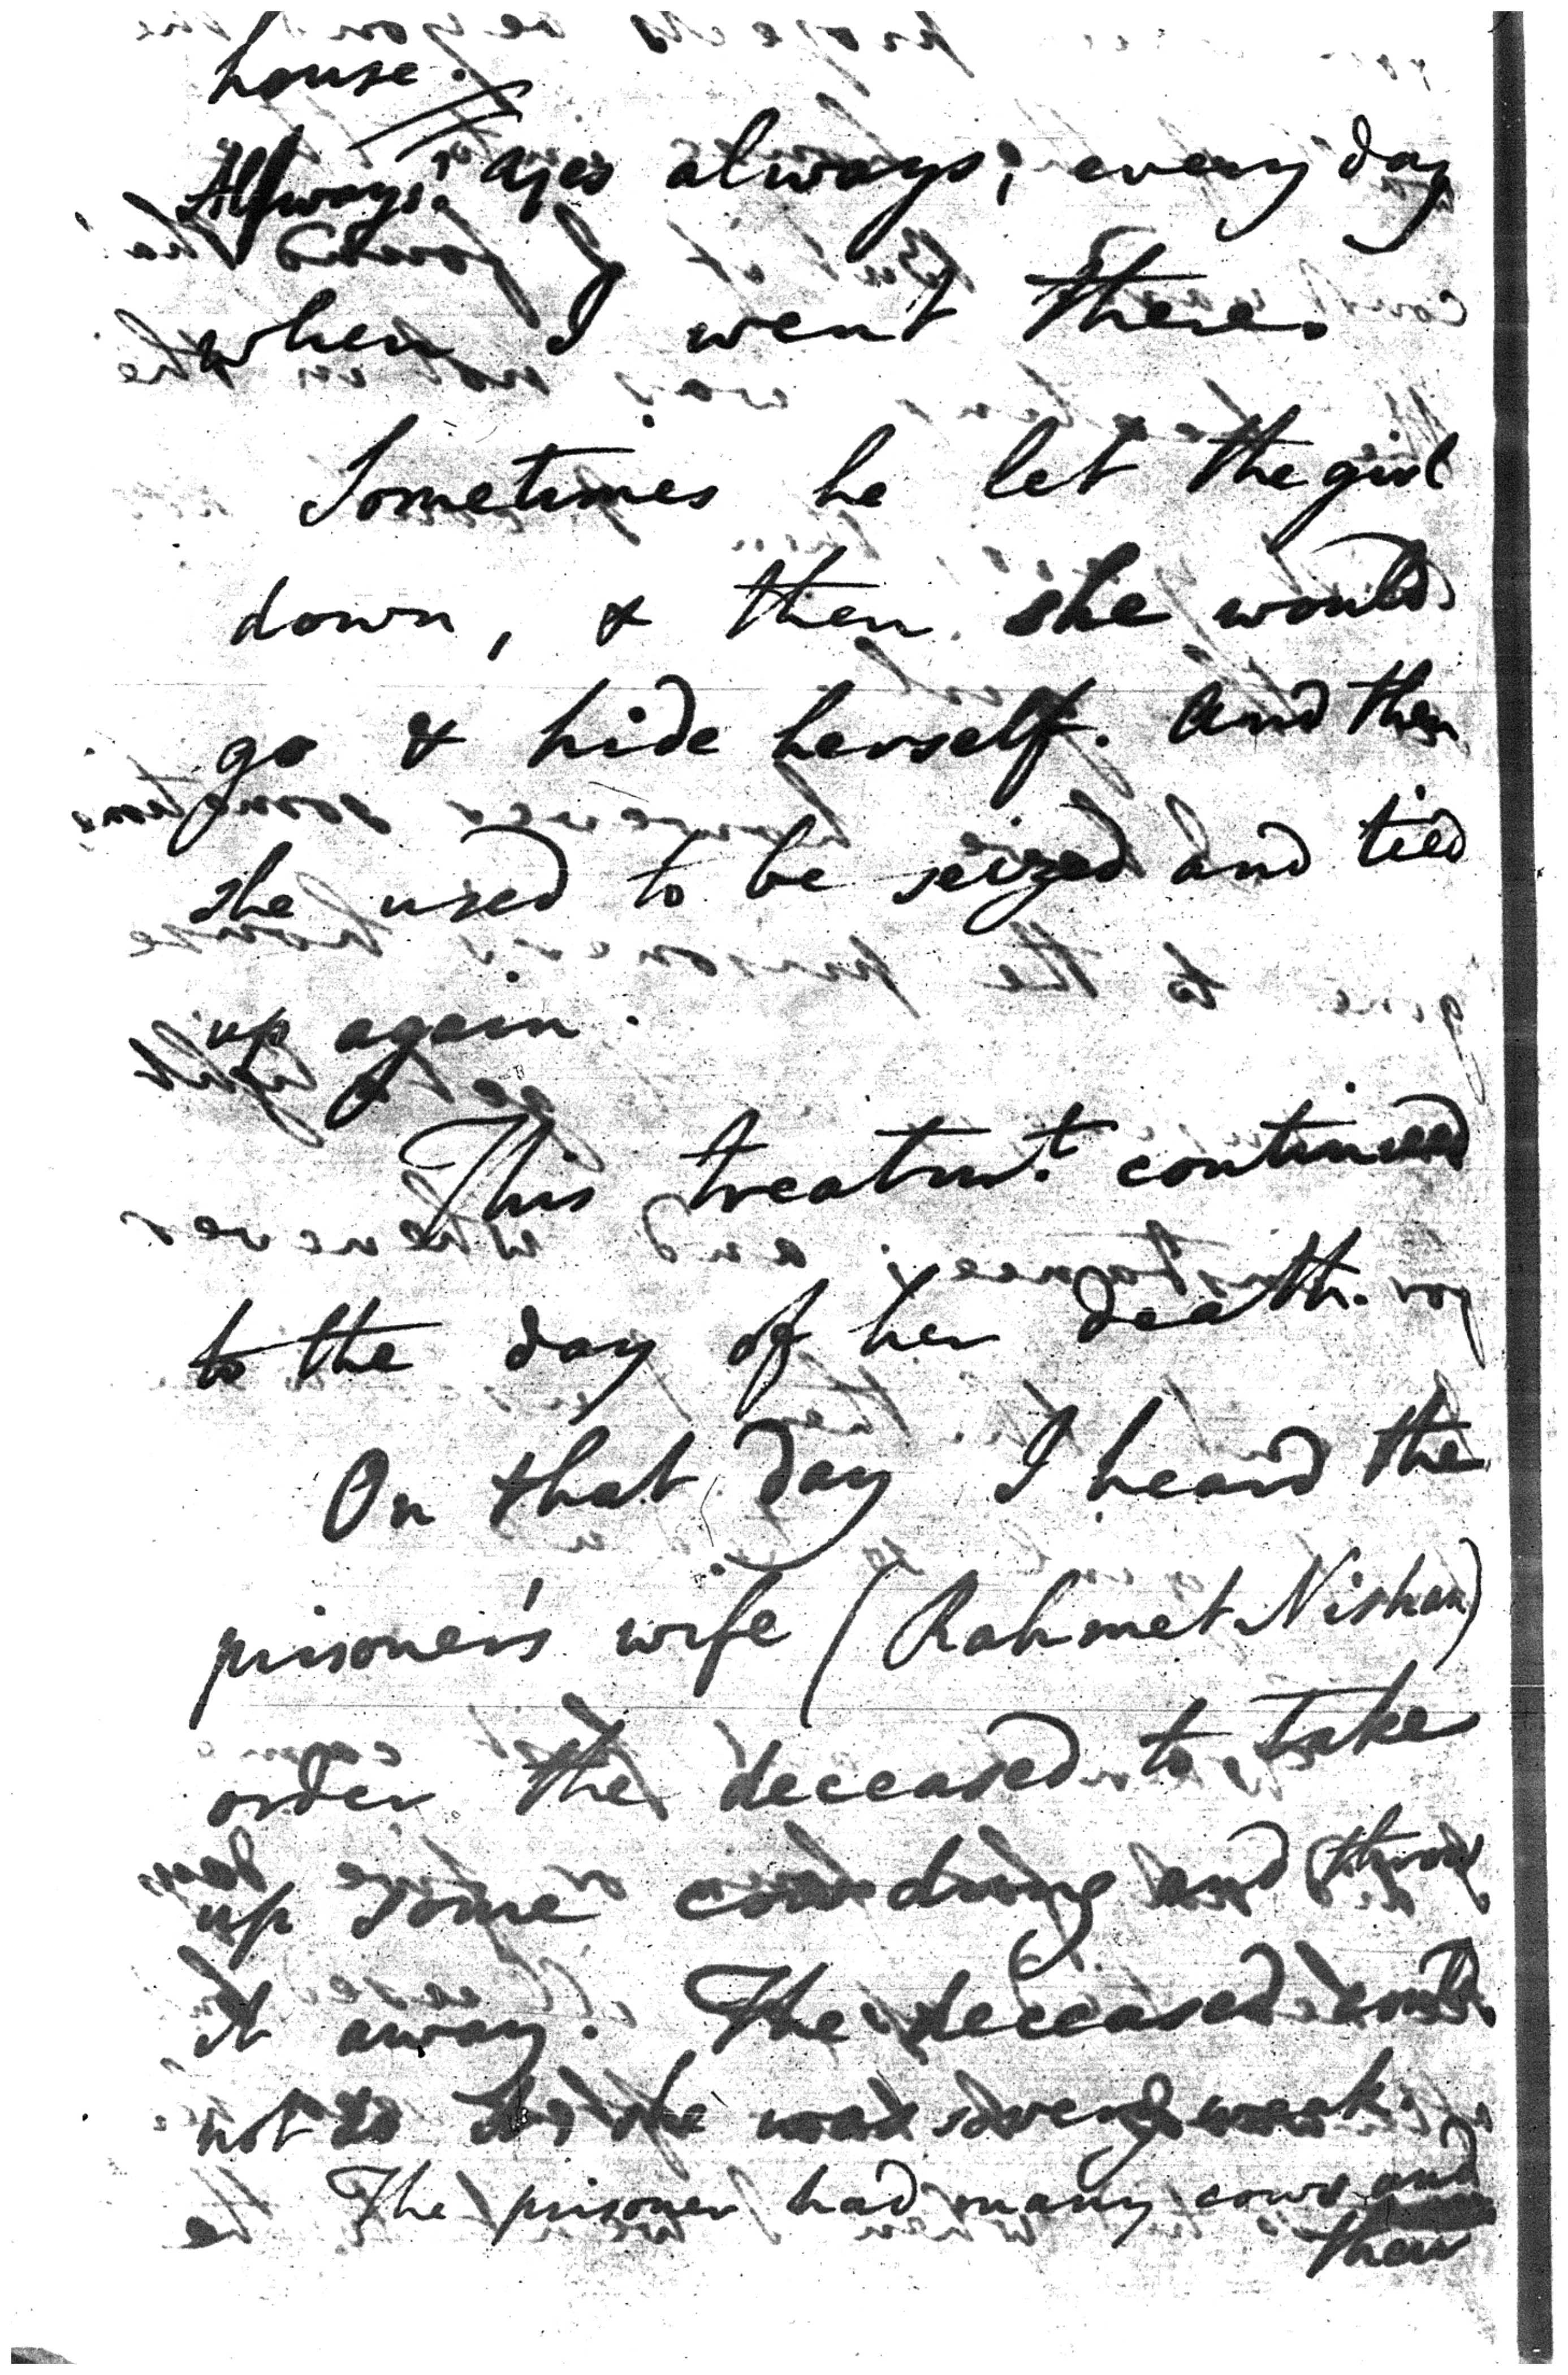 house.
Always? Yes always; every day
when I went there.
Sometimes he let the girl
down, & then she would
go & hide herself. And then
she used to be seized and tied
up again.
This treatmt. continued
to the day of her death.
On that day I heard the
prisoner's wife (Rahmet Nishan)
order the deceased to take
up some cow dung and throw
it away. The deceased could
not do it she was very weak.
The prisoner had many cows and
their